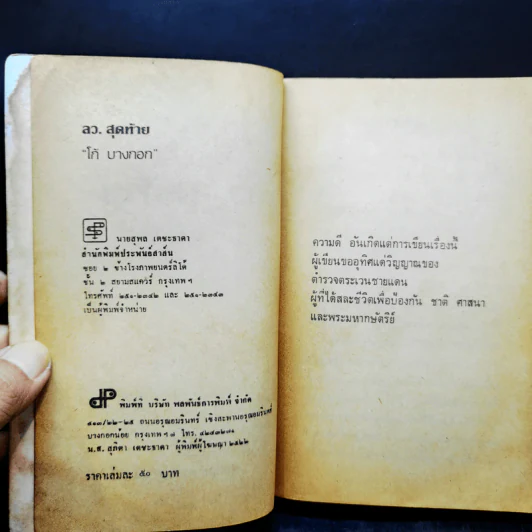 ลว. สุดท้าย
"โก้ บางกอก"
นายสุพล เตชะธาดา
สำนักพิมพ์ประพันธ์สาส์น
ซอย ๒ ข้างโรงภาพยนตร์ลิโด้
ชั้น ๒ สยามสแควร์ กรุงเทพฯ
โทรศัพท์ ๒๕๑-๒๓๔๒ และ ๒๕๑-๒๓๔๓
เป็นผู้พิมพ์จำหน่าย
พิมพ์ที่ บริษัท พลพันธ์การพิมพ์ จำกัด
๕๑๓/๒๒-๒๕ ถนนอรุณอมรินทร์ เชิงสะพานอรุณอมรินทร์
บางกอกน้อย กรุงเทพฯ ๗ โทร.
น.ส. สุภิตา เตชะธาดา ผู้พิมพ์ผู้โฆษณา ๒๕๒๒
ราคาเล่มละ ๕๐ บาท
ความดี อันเกิดแต่การเขียนเรื่องนี้
ผู้เขียนขออุทิศแด่วิญญาณของ
ตำรวจตระเวนชายแดน
ผู้ที่ได้สละชีวิตเพื่อป้องกัน ชาติ ศาสนา
และพระมหากษัตริย์